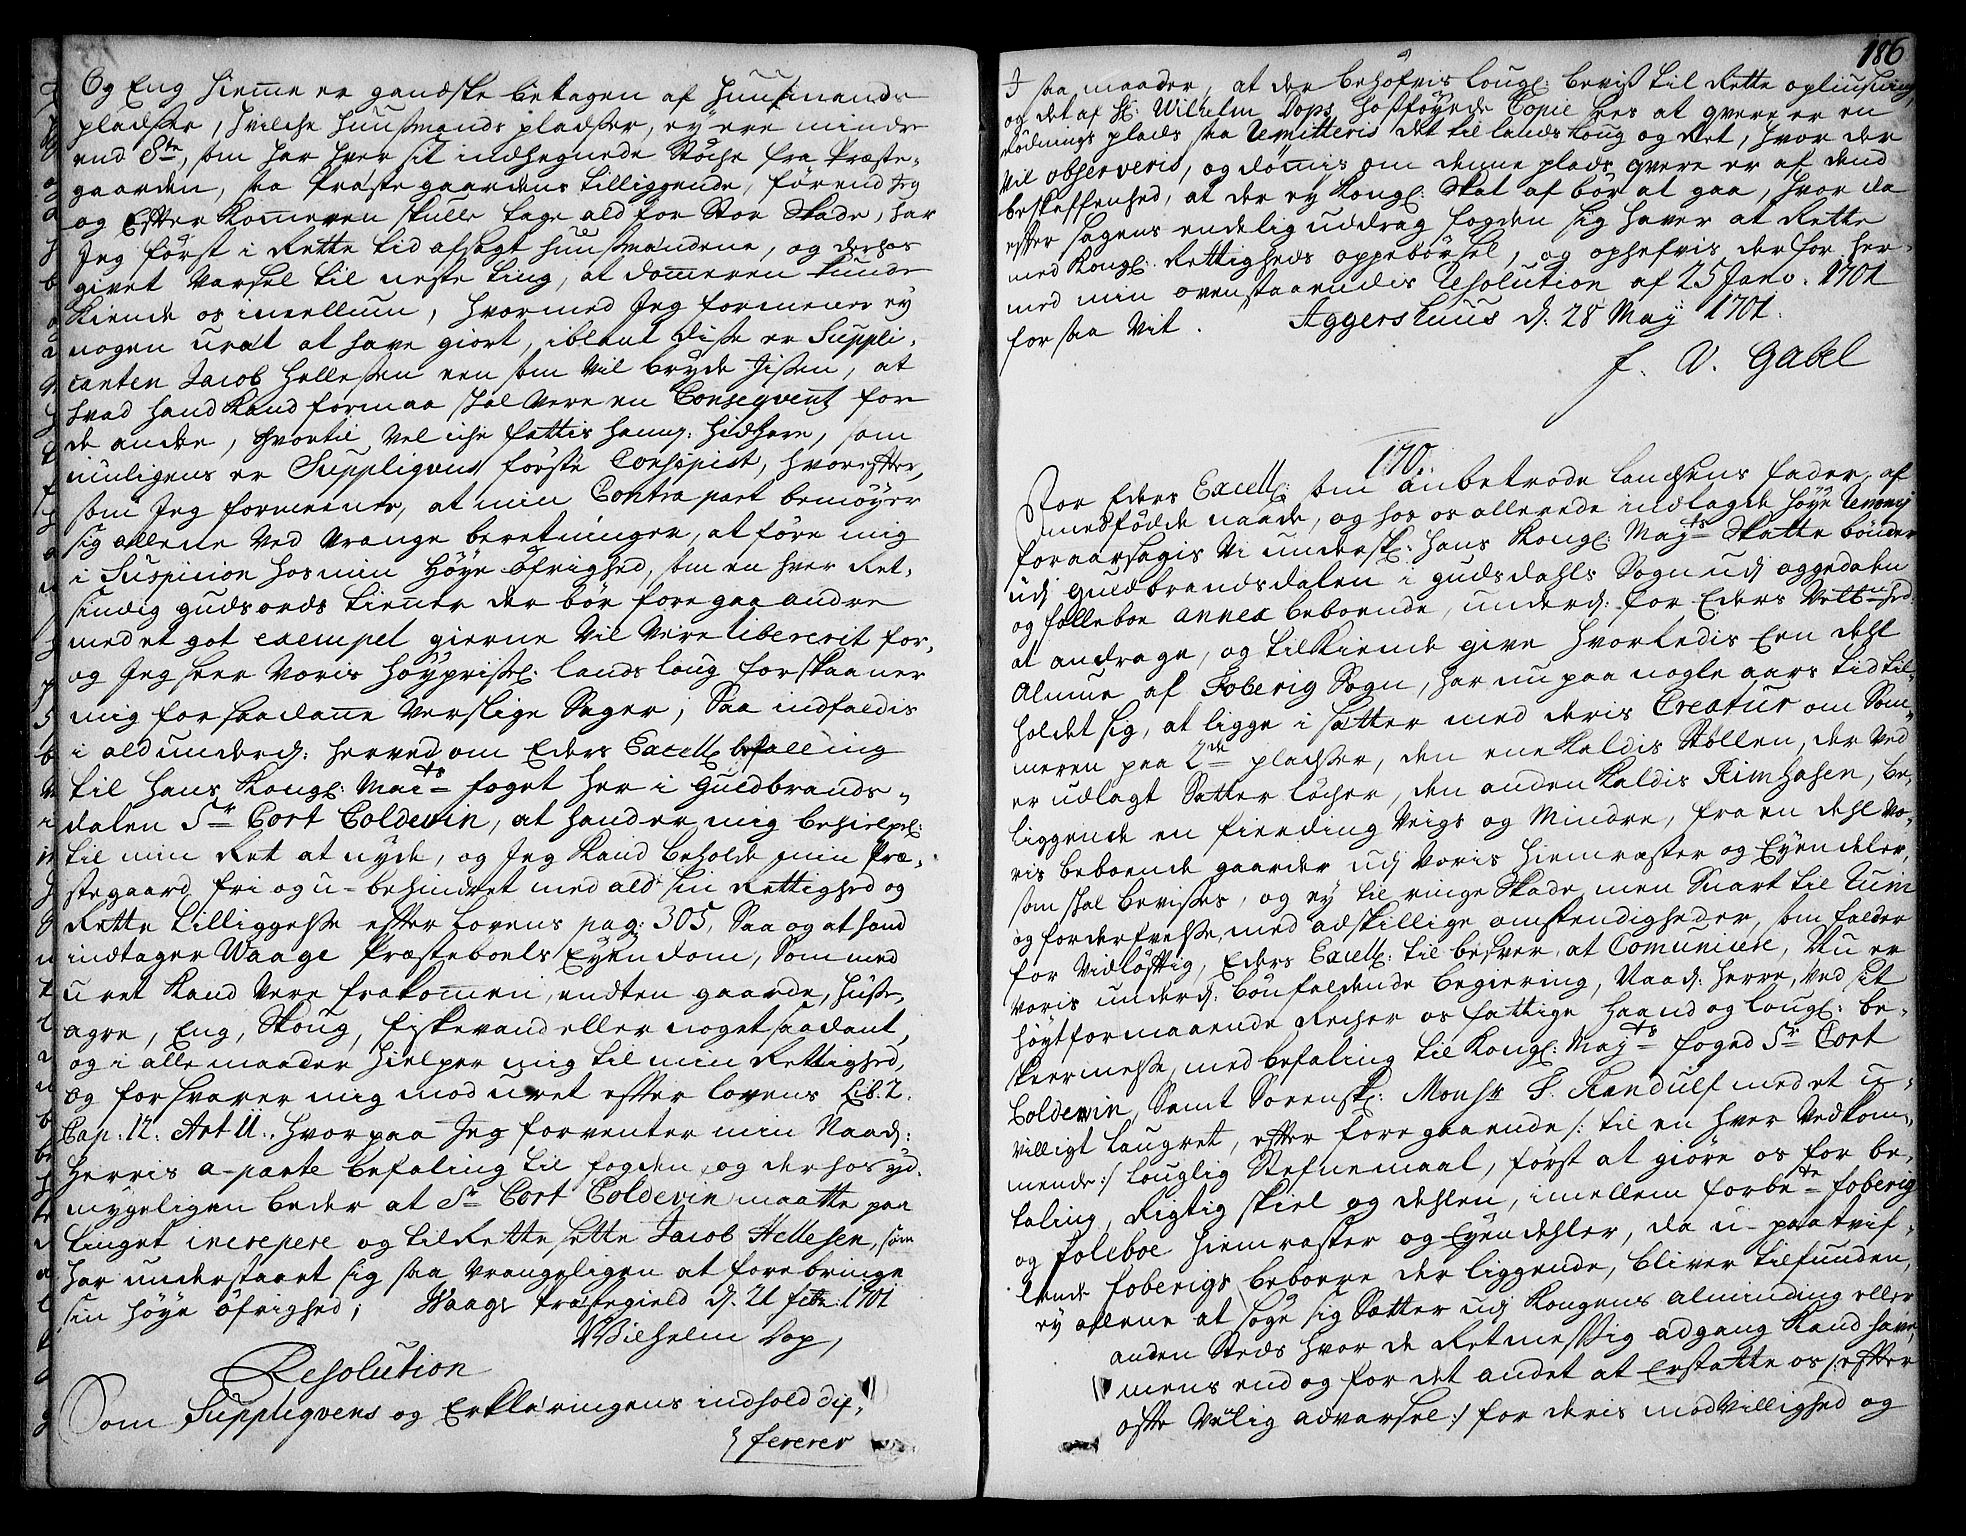 Og Eng hieme er gandske betagen af Huusmands
pladser, hvilche Huusmands pladser, ey ere mindre
end 8te, som har hver sit indhegnede Støche fra Præste-
gaarden, saa Præstegaardens tilliggende, førend Jeg
og Efter Komeren skulle tage alt for Stor Skade, har
Jeg først i Rette tid afsagt huusmændene, og derhos
givet Varsel til neste ting, at domeren kunde
kiende os imellum, hvormed Jeg formener ey
nogen uræt at have giort, iblant disse er Suppli-
canten Jacob Hellesen een som vil bryde Jissen, at
hvad hand kand formaa skal vere en Conseqvents for
de andre, hvortil vel iche fattis ham, som
muligens er Suppliqvens første Consipist, hvorefter,
som Jeg formeener, at min Contrapart bemøyer
sig allene ved vrange beretninger, at føre mig
i Suspicion hos min høye øfrighed, som en hver Ret-
sindig guds ords tiener der bør foregaa andre
med et got exempel gierne vil vere libererit for,
og Jeg seer voris høypriselig lands loug forskaaner
mig for saadane verslige Sager, Saa indfaldis
i ald underd: herved om Eders Excell: befalling
til Hans Kongl: Maits foget her i Guldbrands-
dalen Sr Cort Coldevin, at hand er mig behielpel:
til min Ret at nyde, og Jeg kand beholde min Præ-
stegaard fri og u-behindret med ald sin Rettighed og
Rette tilliggelse efter lovens pag: 305, Saa og at hand
indtager Waage Præsteboels Eyendom, Som med
uret kand vere frakomen, endten gaarde, huse,
agre, Eng, Skoug, fiskevand eller noget saadant,
og i alle maader hielper mig til min Rettighed,
og forsvarer mig mod uret efter lovens Lib. 2.
Cap: 12: Art 11. hvorpaa Jeg forventer min Naad:
Herris a-parte befaling til fogden, og derhos yd-
mygeligen beder at Sr Cort Coldevin maatte paa
tinget increpere og tilRette sette Jacob Hellesen, som
har understaaet sig saa vrangeligen at forebringe
sin høye øfrighed; Waage Præstegield d. 21 febr: 1701
Wilhelm Dop,
Resolution
Som Suppliqvens og Erkleringens indhold dif-
fererer
186
I saa maader, at der behøfvis lougl: beviis til Rette opliusning,
og det af H: Wilhelm Dops hosføyede Copie sees at qvere er en
Rødnings plads saa remitteris det til lands Loug og Ret, hvor der
vil observeris, og dømis om denne plads qvere er af dend
beskaffenhed, at der ey Kongl: Skat af bør at gaa, hvor da
efter sagens endelig uddrag fogden sig haver at Rette
med Kongl: Rettigheds oppebørsel, og ophefvis derfor her-
med min ovenstaaendis Resolution af 25 Janv. 1701
for saa vit. Aggershuus d: 28 Maij 1701.
F. V. Gabel
170.
For Eders Excell: som anbetrode landsens fader, af
medfødde naade, og hos os allerede indlagde høye
foraarsagis Vi undersk: Hans Kongl: Mayts Skatte bønder
udj Guldbrandsdalen i Gudsdahls Sogn udj oggedalen
og følleboe annex beboende, underd: for Eders Velb:hed
at andrage, og tilkiende give hvorledis Een dehl
Almue af Foberig Sogn, har nu paa nogle aars tid til-
holdet sig, at ligge i sætter med deris Creatur om Som-
meren paa 2de pladser, den ene kaldis Støllen, der ved
er udlagt Sætter løcher, den anden kaldis Rimhasen, be-
liggende en fierding Veigs og Mindre, fra en dehl vo-
ris beboende gaarder udj voris hiemraster og Eyendeler,
som skal bevises, og ey til ringe Skade, men Snart til Ruin
og forderfvelse, med adskillige omstendigheder, som falder
for vidløftig, Eders Excell: til besver, at Comunicere, Nu er
voris underd: bønfaldende begiering, Naad: Herre, ved sit
høytformaaende Recher os fattige haand og lougl: be-
skiermelse, med befaling til Kongl: Mayts foged Sr Cort
Coldewin, Samt Sorensk: Monsr S. Randulf med et u-
villigt laugret, efter foregaaende /: til en hver vedkom-
mende :/ Louglig Stefnemaal, først at giøre os for be-
taling, Rigtig skiel og dehlen, imellem forbete foberig
og foleboe hiemraster og Eyendehler, da u-paatvif-
lende foberigs beboere der liggende, bliver tilfunden,
ey allene at søge sig Sætter udj Kongens alminding eller
anden Steds hvor de Retmessig adgang kand have,
mens end og for det andet at Erstatte os /: efter
ofte vêlig advarsel :/ for deris modvillighed og